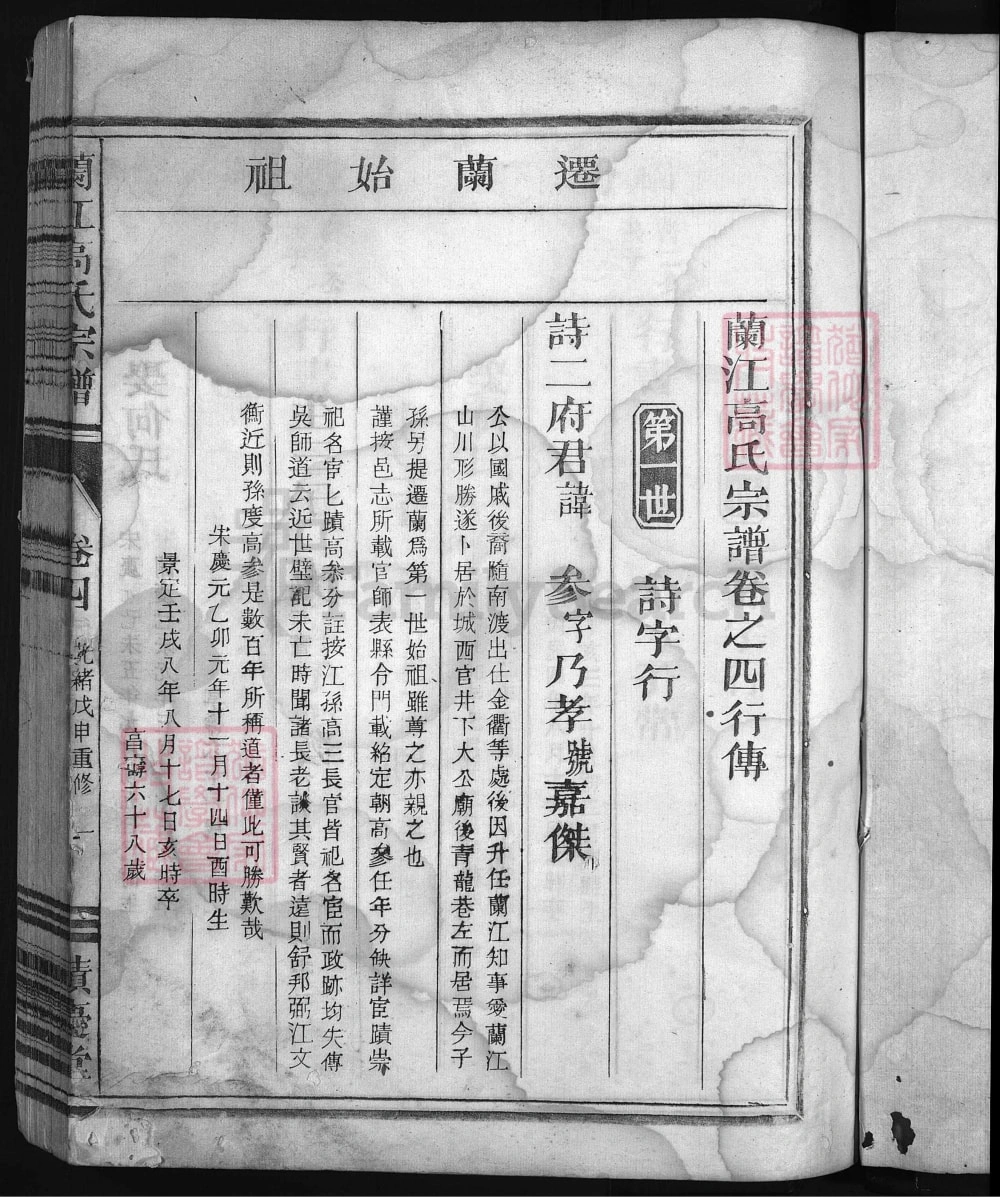 遷蘭始祖
蘭江高氏宗譜卷之四行傳
第一世 詩字行
詩二府君諱 參字乃孝號嘉傑
公以國戚後裔隨南渡出仕金衢等處後因升任蘭江知事愛蘭江
山川形勝遂卜居於城西官井下大公廟後青龍巷左而居焉今子
孫另提遷蘭爲第一世始祖雖尊之亦親之也
謹按邑志所載官師表縣令門載紹定朝高參任年分缺詳宦蹟崇
祀名宦匕蹟高叅分註按江孫高三長官皆祀名宦而政跡均失傳
吳師道云近世壁記未亡時聞諸長老談其賢者遠則舒邦弼江文
衡近則孫度高參是數百年所稱道者僅此可勝歎哉
宋慶元乙卯元年十一月十四日酉時生
景定壬戌八年八月十七日亥時卒
高壽六十八歲
蘭江高氏宗譜
卷四
光緒戊申重修
一